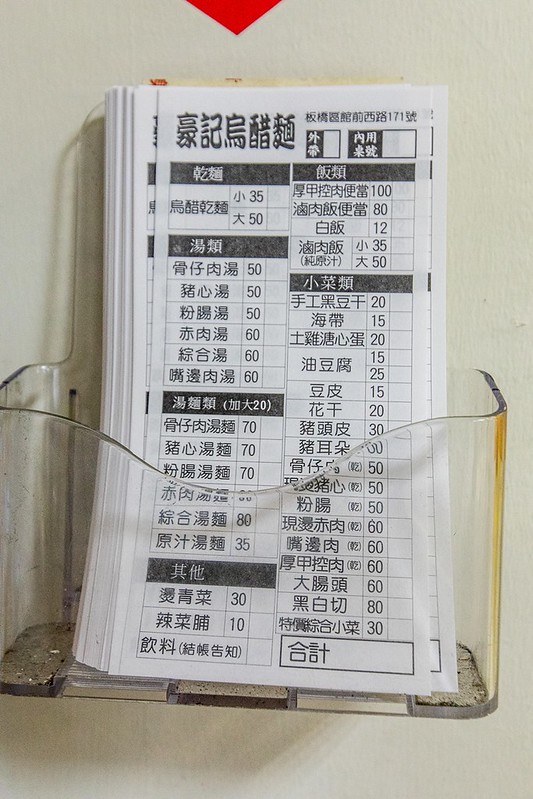 豪記烏醋麵
板橋區館前西路171號
外帶
內用桌號
乾麵
烏醋乾麵 小 35
大 50
湯類
骨仔肉湯 50
豬心湯 50
粉腸湯 50
赤肉湯 60
綜合湯 60
嘴邊肉湯 60
湯麵類 (加大20)
骨仔肉湯麵 70
豬心湯麵 70
粉腸湯麵 70
赤肉湯麵
綜合湯麵 80
原汁湯麵 35
其他
燙青菜 30
辣菜脯 10
飲料(結帳告知)
飯類
厚甲控肉便當 100
滷肉飯便當 80
白飯 12
滷肉飯(純原汁) 小 35
大 50
小菜類
手工黑豆干 20
海帶 15
土雞溏心蛋 20
油豆腐 15
25
豆皮 15
花干 20
豬頭皮 30
豬耳朵
骨仔肉(乾) 50
現燙豬心(乾) 50
粉腸(乾) 50
現燙赤肉(乾) 60
嘴邊肉(乾) 60
厚甲控肉(乾) 60
大腸頭 60
黑白切 80
特價綜合小菜 30
合計